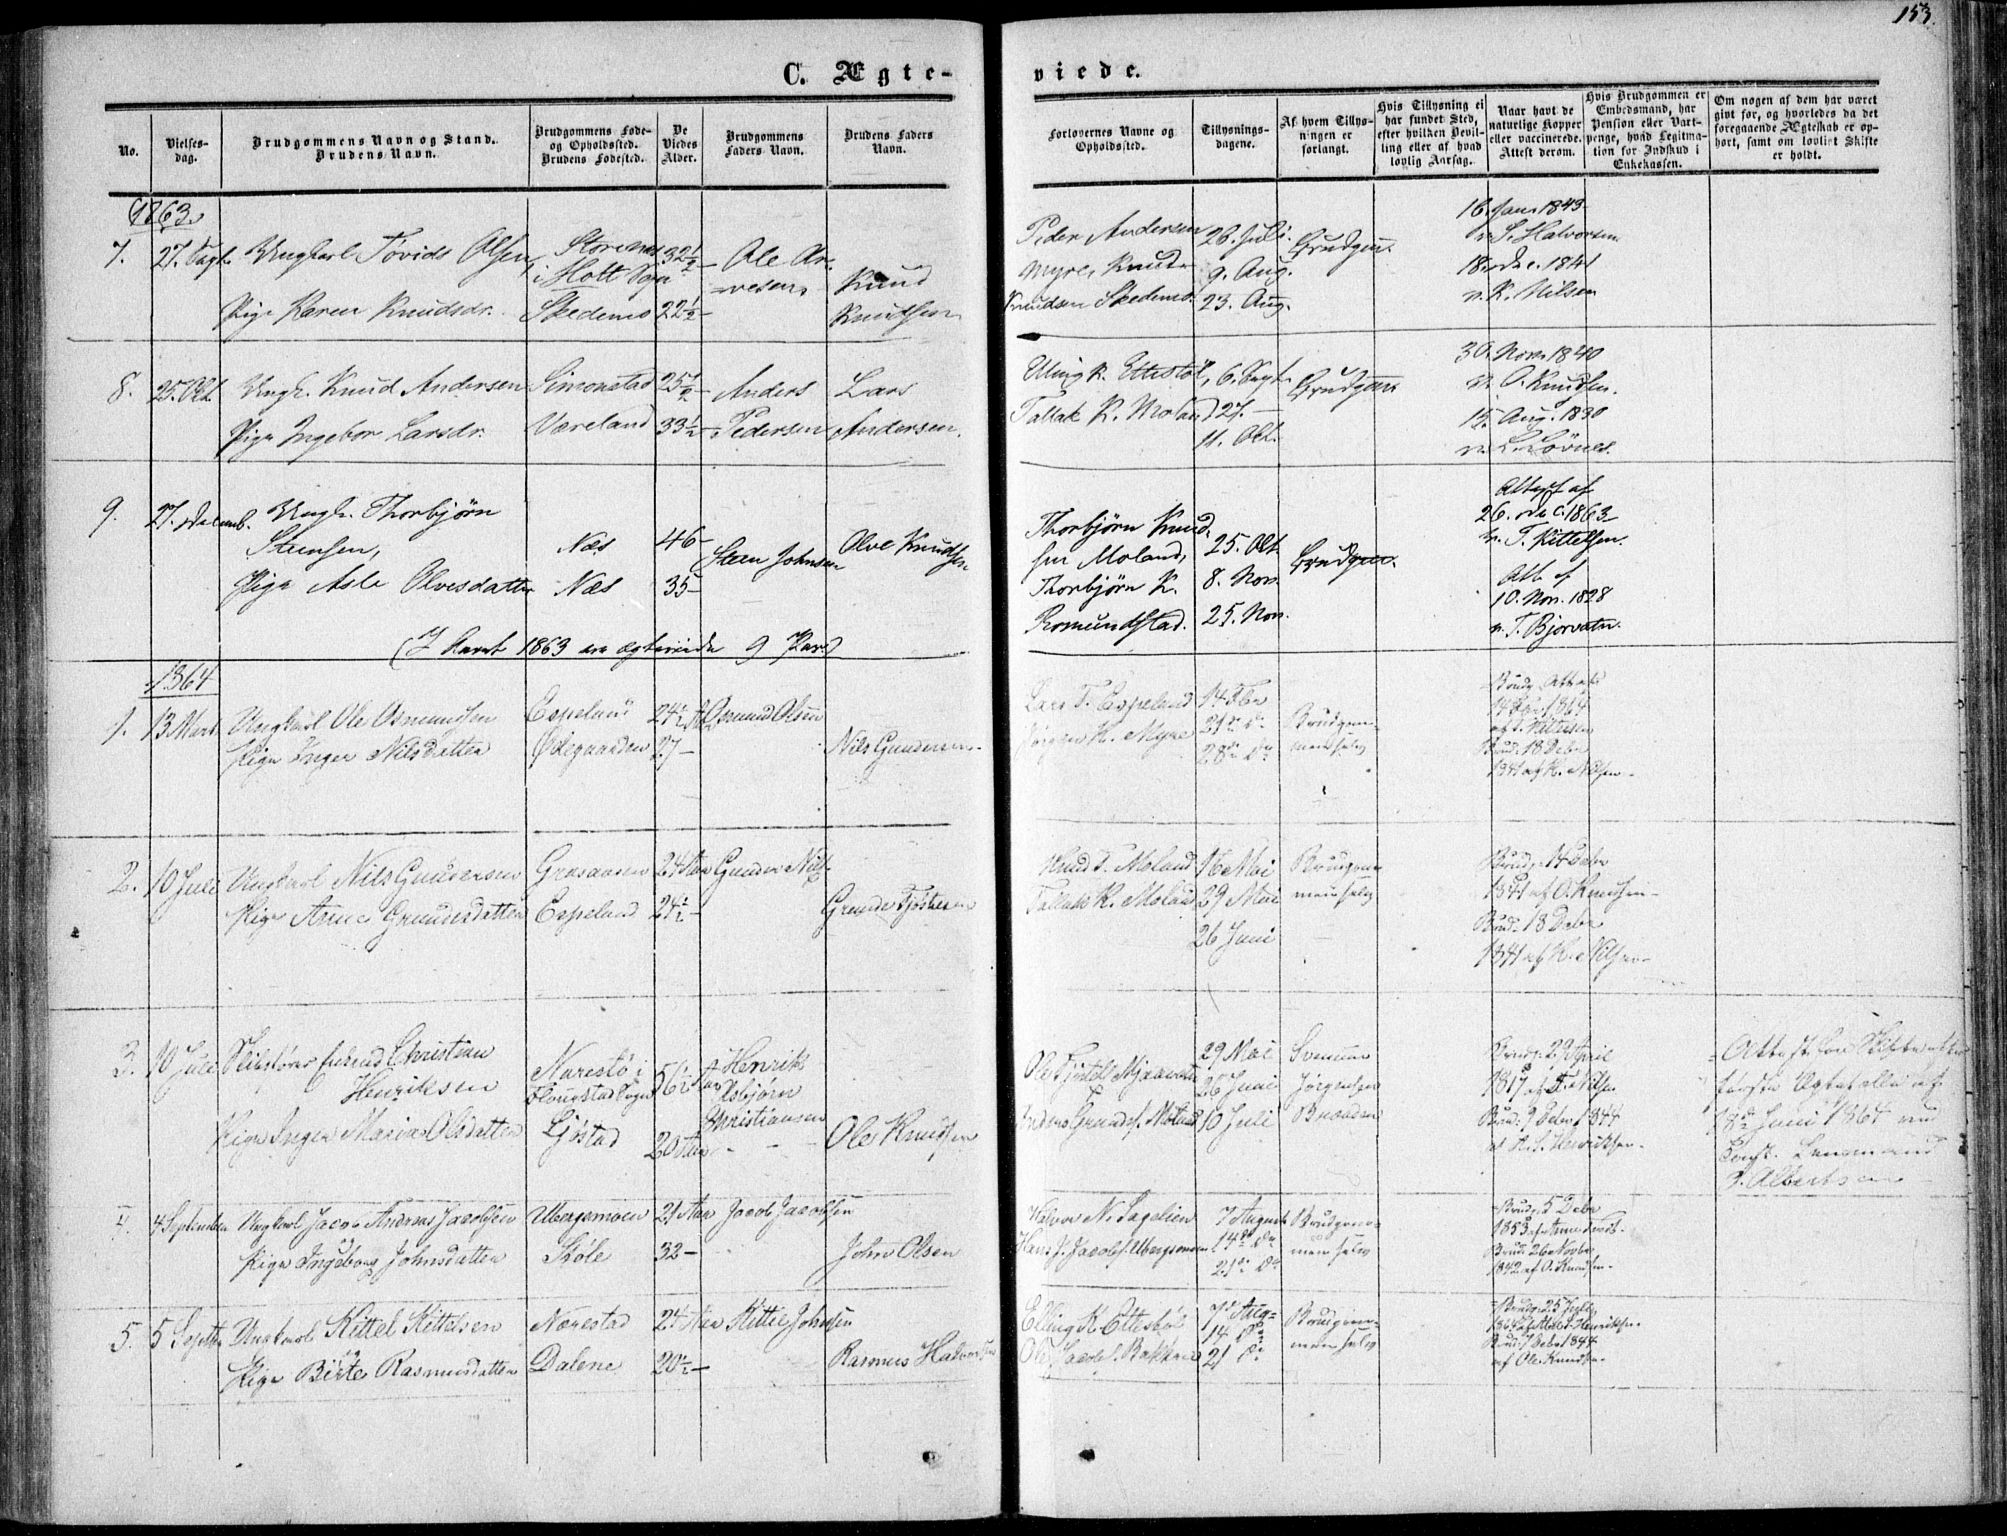 153.
C. Ægte-
viede.
No.
Vielses-
dag.
Brudgommens Navn og Stand.
Brudens Navn.
Brudgommens Føde-
og Opholdssted.
Brudens Fødested.
De
Viedes
Alder.
Brudgommens
Faders Navn.
Brudens Faders
Navn.
Forlovernes Navne og
Opholdssted.
Tillysnings-
dagene.
Af hvem Tillys-
ningen er
forlangt.
Hvis Tillysning ei
har fundet Sted,
efter hvilken Bevil-
ling eller af hvad
lovlig Aarsag.
Naar havt de
naturlige Kopper
eller vaccinerede.
Attest derom.
Hvis Brudgommen er
Embedsmand, har
Pension eller Vart-
penge, hvad Legitima-
tion for Indskud i
Enkekassen.
Om nogen af dem har været
givt før, og hvorledes da det
foregaaende Ægteskab er op-
hørt, samt om lovligt Skifte
er holdt.
1863.
7. 27. Sept. Ungkarl Tovids Olsen, 32½ Ole
i Holt Sogn
Pige Karen Knudsdr. Skedemo 22½ – Knud
Knudsen
Peder Andersen 26. Juli. Brudgom.
Myre, Knud 9. Aug.
Knudsen Skedemo. 23. Aug.
16. Jan. 1843
v. S. Halvorsen
18. Dec. 1841
v. K. Nilsen
8. 25. Okt. Ungk. Knud Andersen Simonstad 25½ – Anders Lars
Pige Ingebor Larsdr. Væreland 33½ – Pedersen Andersen.
K. Ettestøl, 6. Sept. Brudgom
Tallak K. Moland 27. –
11. Okt.
30. Nov. 1840
v. O. Knudsen.
15. Aug. 1830
v. L. Løvnes.
9. 27. Decemb. Ungk. Thorbjørn
Steensen, Næs 46 – Steen Johnsen Olve Knudsen
Pige Asle Olvesdatter Næs 35 –
(I Aaret 1863 ere ægteviede 9 Par)
Thorbjørn Knud-
sen Moland, 25. Okt. Brudgom.
Thorbjørn K. 8. Nov.
Romundstad. 25. Nov.
Attest af
26. Dec. 1863
v. T. Kittelsen.
Att. af
10. Nov. 1828
v. T. Bjorvatn.
1864
1. 13 Mars Ungkarl Ole Osmundsen Espeland 24½ Aar Osmund Olsen
Pige Inger Nilsdatter Ødegaarden 27 – Nils Gundersen
Lars T. Espeland 14 Febr
K. Myre 21de do Brudgom-
28de do men selv
Brudg. Attest
14 1864
af T. Kittelsen
Brud: 18 Debr
1841 af K. Nilsen
2. 10 Juli Ungkarl Nils Gundersen Graaaasen 24 Aar Gunder Nils.
Pige Anne Grundesdatter Espeland 24½ – Grunde Tjøstesen
Knud T. Moland 16 Mai Brudgom-
Tallak K. Moland 29 Mai men selv
26 Juni
Brudg: 14 Debr
1841 af O. Knudsen
Brud: 18 Debr
1841 af K. Nilsen
3. 10 Juli Christian
Henriksen Narestø i 56½ Aar Henrik
Flougstad Sogn Asbjørn
Christiansen
Pige Inger Maria Olsdatter Ljøstad 20 Aar Ole Knudsen
Ole 29 Mai
26 Juni Jørgensen
Anders Grundes. Moland 10 Juli Bruden
Brudg: 29 April
1817 af F. Nilsen
Brud: 9 Debr 1844
af Henriksen
Attest for Skifte efter
første Ægteskab af
18de Juni 1864 ved
Const. Lensmand
Albertsen
4. 4 September Ungkarl Jacob Andreas Jacobsen Ubergsmoen 21 Aar Jacob Jacobsen
Pige Ingeborg Johnsdatter Skøle 32 – John Olsen
Halvor N. Sagelien 7 August Brudgom-
Hans J. Jacobs. Ubergsmoen 14de do men selv
21de do
Brudg: 5 Debr
1853 af
Brud: 26 Novbr
1842 af O. Knudsen
5. 5 Septbr Ungkarl Kittel Kittelsen Narestad 24 Aar Kittel Johnsen
Pige Birte Rasmusdatter Dalene 20½ – Rasmus Halvorsen
Elling K. Ettestøl 7 Aug. Brudgom-
14 do men selv
Ole Jacobs. Bakken 21 do
Brudg: 25 Juli
1864 af Henriksen
Brud: 7 Debr 1844
af Ole Knudsen